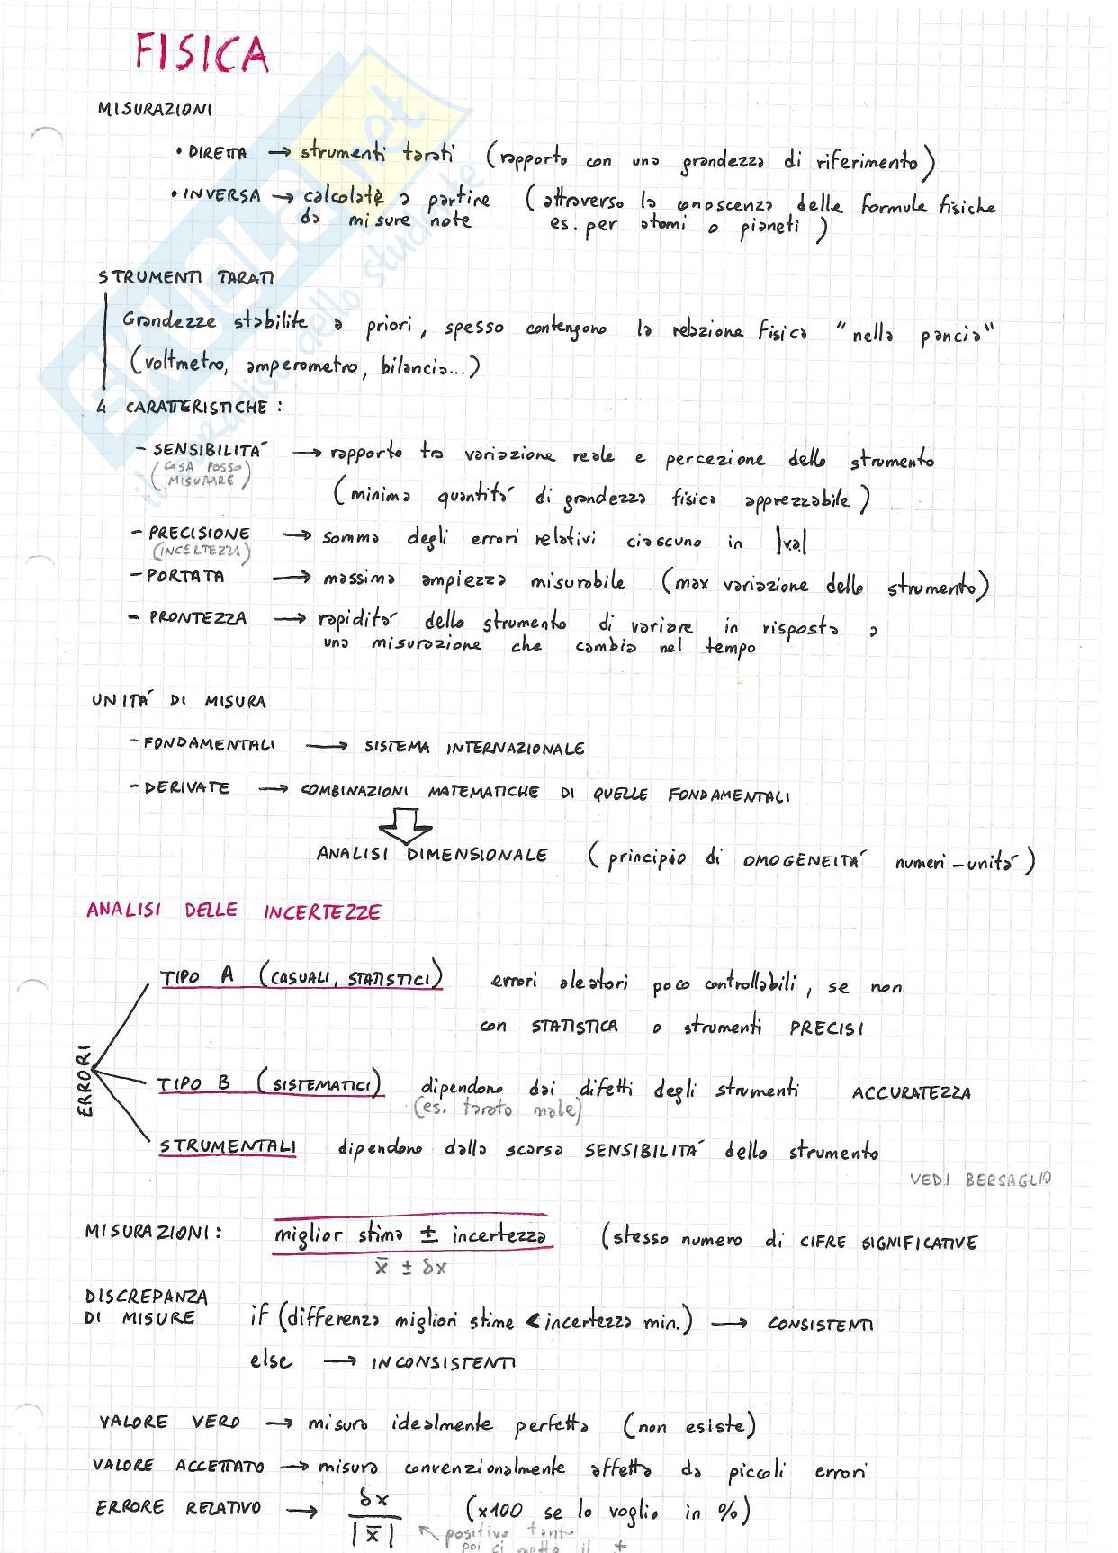 FISICA
MISURAZIONI
• DIRETTA → strumenti tarati (rapporto con una grandezza di riferimento)
• INVERSA → calcolate a partire (attraverso la conoscenza delle formule fisiche
da misure note es. per atomi o pianeti)
STRUMENTI TARATI
Grandezze stabilite a priori, spesso contengono la relazione fisica "nella pancia"
(voltmetro, amperometro, bilancia...)
4 CARATTERISTICHE:
- SENSIBILITÁ → rapporto tra variazione reale e percezione dello strumento
(COSA POSSO
MISURARE) (minima quantitá di grandezza fisica apprezzabile)
- PRECISIONE → somma degli errori relativi ciascuno in |va|
(INCERTEZZA)
- PORTATA → massima ampiezza misurabile (max variazione dello strumento)
- PRONTEZZA → rapiditá dello strumento di variare in risposta a
una misurazione che cambia nel tempo
UNITÁ DI MISURA
- FONDAMENTALI → SISTEMA INTERNAZIONALE
- DERIVATE → COMBINAZIONI MATEMATICHE DI QUELLE FONDAMENTALI
ANALISI DIMENSIONALE (principio di OMOGENEITÁ numeri-unitá)
ANALISI DELLE INCERTEZZE
ERRORI
TIPO A (CASUALI, STATISTICI) errori aleatori poco controllabili, se non
con STATISTICA o strumenti PRECISI
TIPO B (SISTEMATICI) dipendono dai difetti degli strumenti ACCURATEZZA
(es. tarato male)
STRUMENTALI dipendono dalla scarsa SENSIBILITÁ dello strumento
VEDI BERSAGLIO
MISURAZIONI: miglior stima ± incertezza (stesso numero di CIFRE SIGNIFICATIVE
x̄ ± δx
DISCREPANZA
DI MISURE if (differenza migliori stime < incertezza min.) → CONSISTENTI
else → INCONSISTENTI
VALORE VERO → misura idealmente perfetta (non esiste)
VALORE ACCETTATO → misura convenzionalmente affetta da piccoli errori
ERRORE RELATIVO → δx / |x̄| (x100 se lo voglio in %)
positivo tanto
poi ci metto il ±
SKUOLA.net
il paradiso dello studente